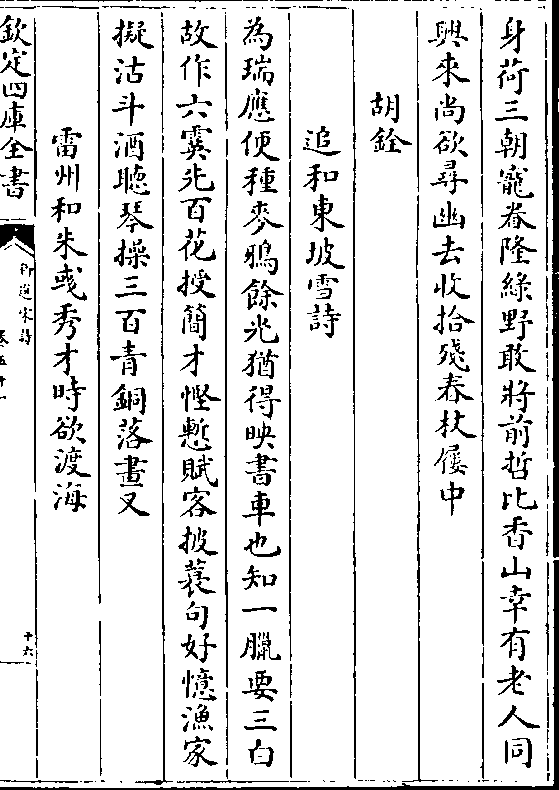 身荷三朝寵眷隆綠野敢將前哲比香山幸有老人同
興來尚欲尋幽去收拾殘春杖屨中
胡銓
追和東坡雪詩
為瑞應便種麥鴉餘光猶得映書車也知一臘要三白
故作六霙先百花授簡才慳慙賦客披蓑句好憶漁家
擬沽斗酒聴琴操三百青銅落畫叉
雷州和朱彧秀才時欲渡海
欽定四庫全書
御選宋詩
卷五十一
十六